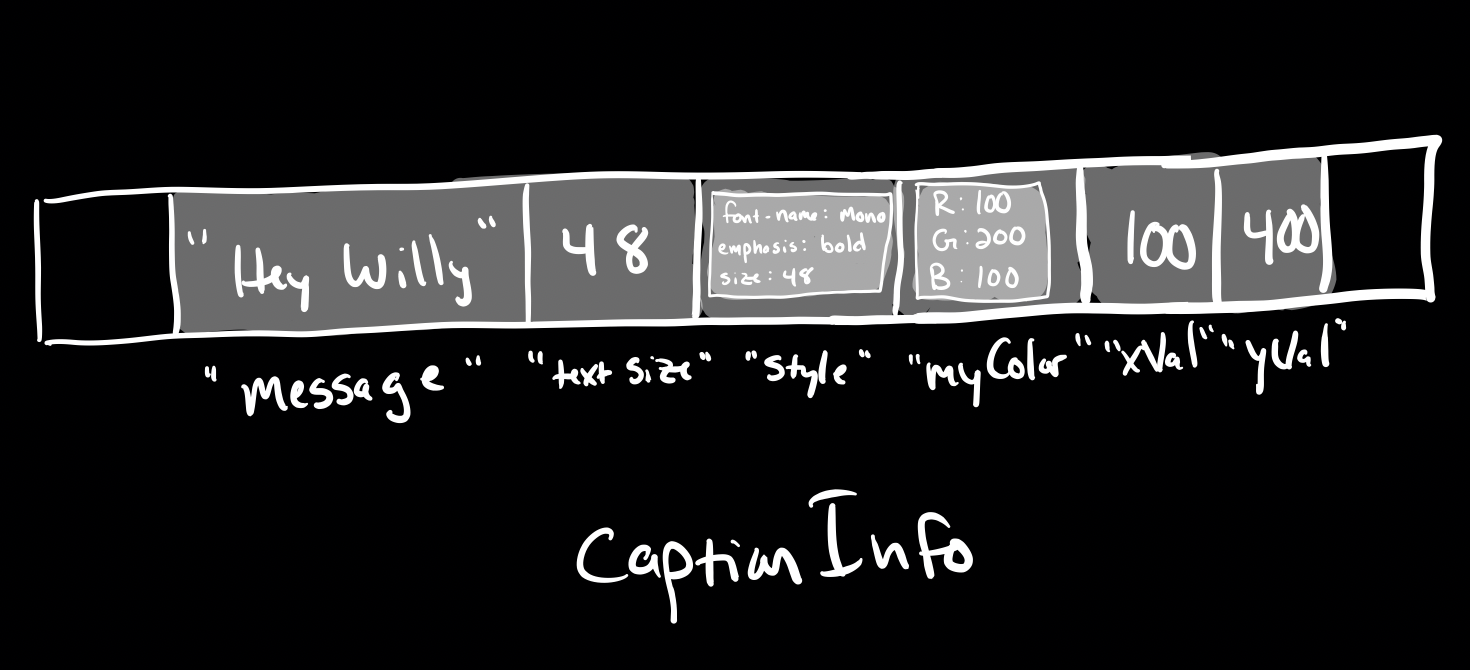 "Hey Willy"
48
font-name: Mono
emphasis: bold
size: 48
R: 100
G: 200
B: 100
100
400
"message"
"text size"
"style"
"myColor"
"xVal"
"yVal"
CaptionInfo